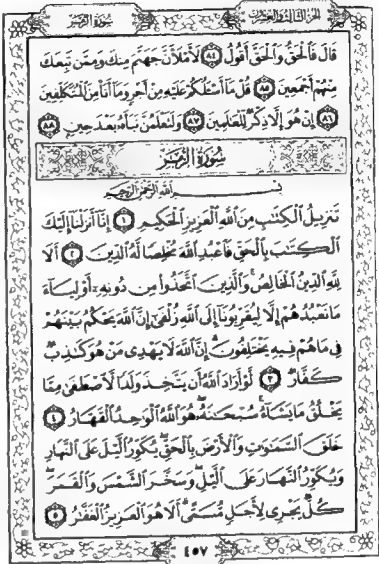 سُورَةُ الزُّمَرِ الجزء الثالث والعشرون
قَالَ فَالْحَقُّ وَالْحَقَّ أَقُولُ ٨٤ لَأَمْلَأَنَّ جَهَنَّمَ مِنكَ وَمِمَّن تَبِعَكَ
مِنْهُمْ أَجْمَعِينَ ٨٥ قُلْ مَا أَسْـَٔلُكُمْ عَلَيْهِ مِنْ أَجْرٍ وَمَا أَنَا۠ مِنَ الْمُتَكَلِّفِينَ
٨٦ إِنْ هُوَ إِلَّا ذِكْرٌ لِّلْعَالَمِينَ ٨٧ وَلَتَعْلَمُنَّ نَبَأَهُ بَعْدَ حِينٍ ٨٨
سُورَةُ الزُّمَرِ
بِسْمِ اللَّهِ الرَّحْمَٰنِ الرَّحِيمِ
تَنزِيلُ الْكِتَٰبِ مِنَ اللَّهِ الْعَزِيزِ الْحَكِيمِ ١ إِنَّا أَنزَلْنَا إِلَيْكَ
الْكِتَٰبَ بِالْحَقِّ فَاعْبُدِ اللَّهَ مُخْلِصًا لَّهُ الدِّينَ ٢ أَلَا
لِلَّهِ الدِّينُ الْخَالِصُ وَالَّذِينَ اتَّخَذُوا مِن دُونِهِ أَوْلِيَاءَ
مَا نَعْبُدُهُمْ إِلَّا لِيُقَرِّبُونَا إِلَى اللَّهِ زُلْفَىٰ إِنَّ اللَّهَ يَحْكُمُ بَيْنَهُمْ
فِي مَا هُمْ فِيهِ يَخْتَلِفُونَ إِنَّ اللَّهَ لَا يَهْدِي مَنْ هُوَ كَٰذِبٌ
كَفَّارٌ ٣ لَّوْ أَرَادَ اللَّهُ أَن يَتَّخِذَ وَلَدًا لَّاصْطَفَىٰ مِمَّا
يَخْلُقُ مَا يَشَاءُ سُبْحَٰنَهُ هُوَ اللَّهُ الْوَٰحِدُ الْقَهَّارُ ٤
خَلَقَ السَّمَٰوَٰتِ وَالْأَرْضَ بِالْحَقِّ يُكَوِّرُ الَّيْلَ عَلَى النَّهَارِ
وَيُكَوِّرُ النَّهَارَ عَلَى الَّيْلِ وَسَخَّرَ الشَّمْسَ وَالْقَمَرَ
كُلٌّ يَجْرِي لِأَجَلٍ مُّسَمًّى أَلَا هُوَ الْعَزِيزُ الْغَفَّٰرُ ٥
٤٥٧